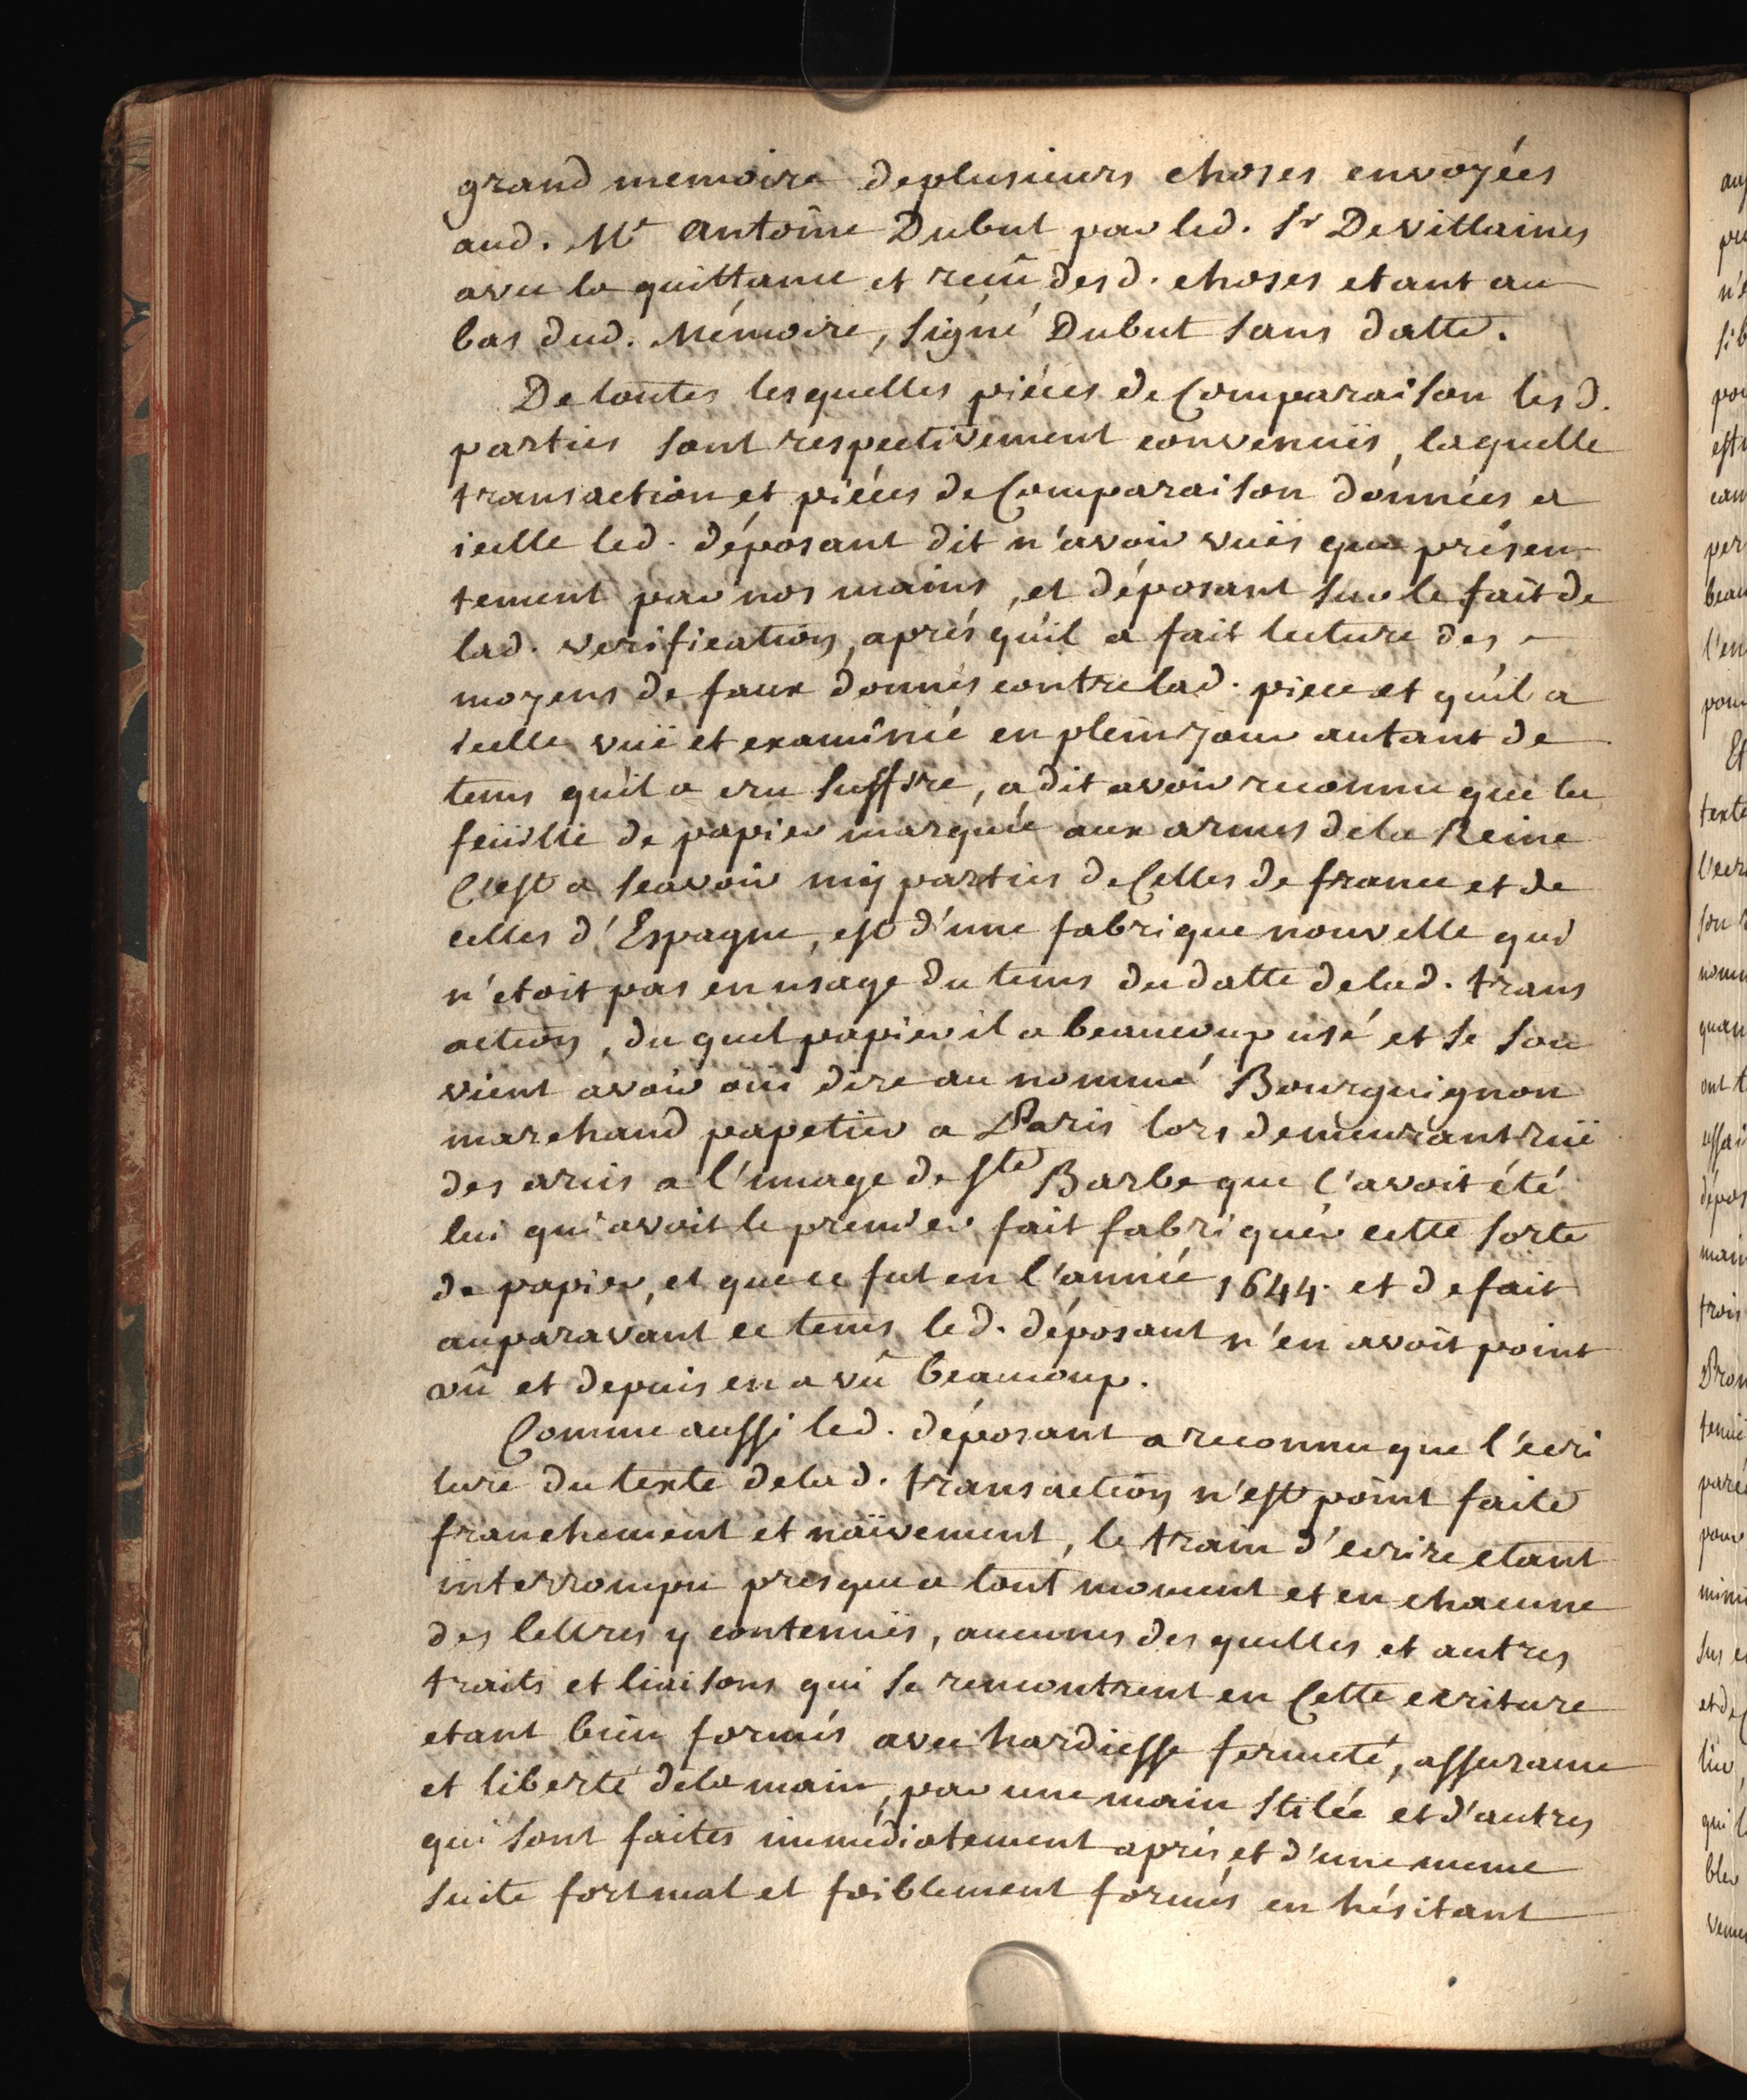 grand memoire deplusieurs choses envoyées
aud. Mt Antoine Dubut par led. Sr Devillaines
avec la quittance et recû desd. choses etant au
bas dud. Mémoire, Signé Dubut sans datte.
De toutes lesquelles piéces de Comparaison lesd.
parties sont respectivement convenuës, laquelle
transaction et piéces de Comparaison données a
icelle led. déposant dit n'avoir vuës que présen-
tement par nos mains, et déposant sur le fait de
lad. verification, aprés qu'il a fait lecture des
moyens de faux donnés contre lad. piece et qu'il a
icelle vuë et examinée en plein jour autant de
tems qu'il a cru suffire, a dit avoir reconnu que la
feüille de papier marquée aux armes de la Reine
C'est a scavoir my parties de Celles de france et de
celles d'Espagne, est d'une fabrique nouvelle qui
n'etoit pas en usage du tems du datte delad. trans
action, du quel papier il a beaucoup usé et se sou
vient avoir oui dire au nommé Bourguignon
marchand papetier a Paris lors demeurant ruë
des arcis a l'image de Ste Barbe que c'avoit été
lui qui avoit le premier fait fabriquer cette sorte
de papier, et que ce fut en l'année 1644. et de fait
auparavant ce tems led. déposant n'en avoit point
vû et depuis en a vû beaucoup.
Comme aussi led. déposant a reconnu que l'ecri
ture du texte delad. transaction n'est point faite
franchement et naïvement, le train d'ecrire etant
interrompu presque a tout moment et en chacune
des lettres y contenuës, aucunes desquelles et autres
traits et liaisons qui se rencontrent en Cette ecriture
etant bien formés avec hardiesse fermeté, assurance
et liberté dela main, par une main stilée et d'autres
qui sont faites immédiatement aprés et d'une meme
suite fort mal et foiblement formés en hésitant